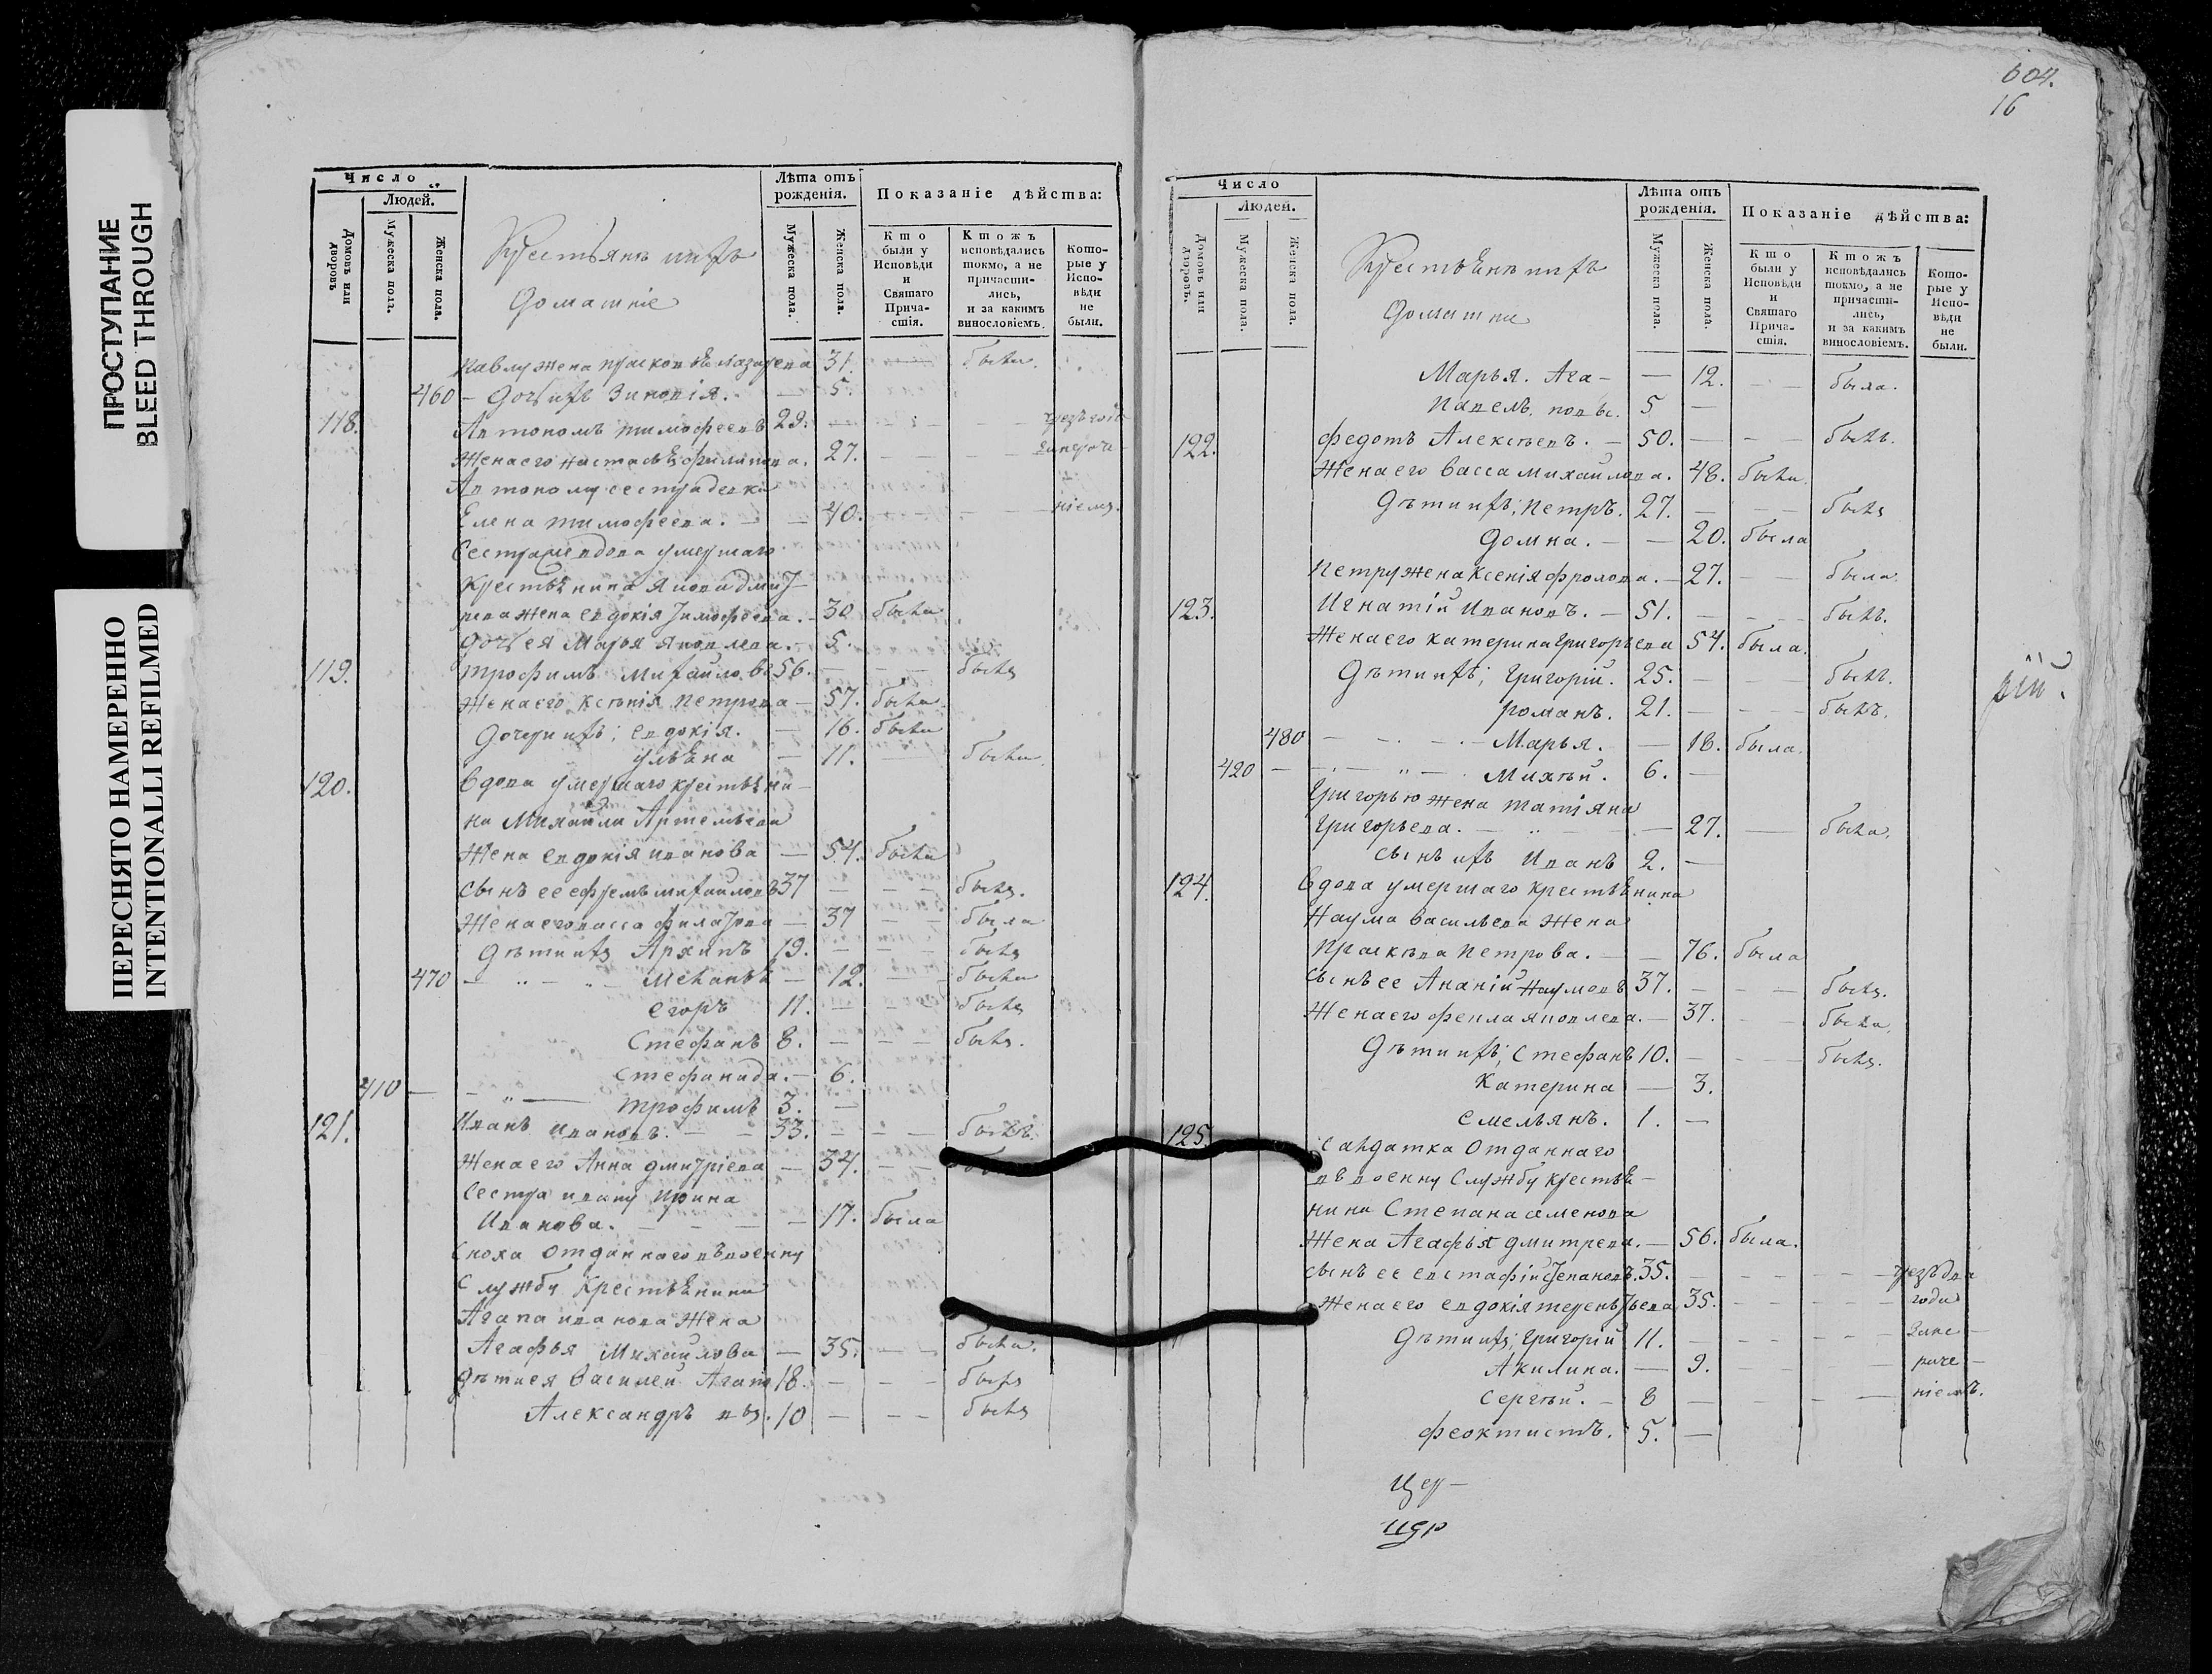 ПРОСТУПАНИЕ
BLEED THROUGH
ПЕРЕСНЯТО НАМЕРЕННО
INTENTIONALLI REFILMED
Число
Людей.
Домовъ или дворовъ
Мужеска полъ.
Женска пола.
Крестьяне ихъ
домашніе
Лѣта отъ рожденія.
Мужеска пола.
Женска пола.
Показаніе дѣйства:
Кто были у Исповѣди и Святаго Прича-стія.
Ктожъ исповѣдались токмо, а не причасти-лись, и за какимъ винословіемъ.
Кото-рые у Испо-вѣди не были.
Павлу жена прасковья лазарева 31. была.
460 - дочь ихъ Зиновія. — 5.
118. Автономъ тимофеевъ 29.
Жена его настасья филипова. 27.
Автоному сестра девка
Елена тимофеева. — — 40. — ніемъ.
умершаго
Крестьянина якова дмит-
рева жена евдокія Тимофеева. - 30 была
дочь ея Марья яковлева. - 5.
119. трофимъ михайловъ 56. — былъ
Жена его ксенія петрова — 57. была
дочери ихъ; евдокія. — 16. была
ульяна — 11. была
120. Вдова умершаго крестьяни-
на Михайла Артемьева
Жена евдокія иванова — 54. была
сынъ ее ефремъ михайловъ 37 — былъ.
Жена его васса филатова — 37 — была
дѣти ихъ Архипъ 19. — былъ
470 — Меланья — 12. — была
егоръ 11. — былъ
Стефанъ 8. — былъ.
стефанида. — 6.
410 — трофимъ 3. —
121. Иванъ ивановъ. — 33. — былъ.
Жена его Анна дмитріева — 34.
Сестра ивану ирина
Иванова. — — 17. была
Сноха отданнаго въ военну
Службу Крестьянина
Агапа иванова Жена
Агафья Михайлова — 35. — была.
дѣти ея василей Агапо 18. — былъ
Александръ въ. 10 — былъ
604.
16
Число
Людей.
Домовъ или дворовъ.
Мужеска пола.
Женска пола.
Крестьяне ихъ
домашние
Лѣта отъ рожденія.
Мужеска пола.
Женска пола.
Показаніе дѣйства:
Кто были у Исповѣди и Святаго Прича-стія.
Ктожъ исповѣдались токмо, а не причасти-лись, и за какимъ винословіемъ.
Кото-рые у Испо-вѣди не были.
Марья. Ага- — 12. — была.
павелъ. повъ. 5 —
122. федотъ Алексѣевъ. — 50. — былъ.
Жена его васса михайлова. 48. была.
дѣти ихъ; петръ. 27. — былъ
домна. — — 20. была
петру жена ксенія фролова. — 27. — была.
123. Игнатій ивановъ. — 51. — былъ.
Жена его катерина григорьева 54. была.
дѣти ихъ; григорій. 25. — былъ.
романъ. 21. — былъ.
480 — Марья. — 18. была.
420 — Михѣй. 6. —
григорью жена татіяна
григорьева. — — 27. — была.
сынъ ихъ иванъ 2. —
124. Вдова умершаго крестьянина
Наума васильева жена
Прасковa петрова. — — 76. была
сынъ ее Ананій наумовъ 37. — былъ.
Жена его фекла яковлева. — 37. — была.
дѣти ихъ; стефанъ 10. — былъ.
катерина — 3.
емельянъ. 1. —
125. салдатка отданнаго
въ военну Службу крестья-
нина Степана семенова
Жена Агафья дмитрева. — 56. была.
сынъ ее евстафій степановъ. 35. — чрезъ два
Жена его евдокія терентьева 35. — года
дѣти ихъ; григорій 11. — зане
Акилина. — 9. — раче
Сергѣй. — 8 — ніемъ.
феоктистъ. 5. —
рій.
цер-